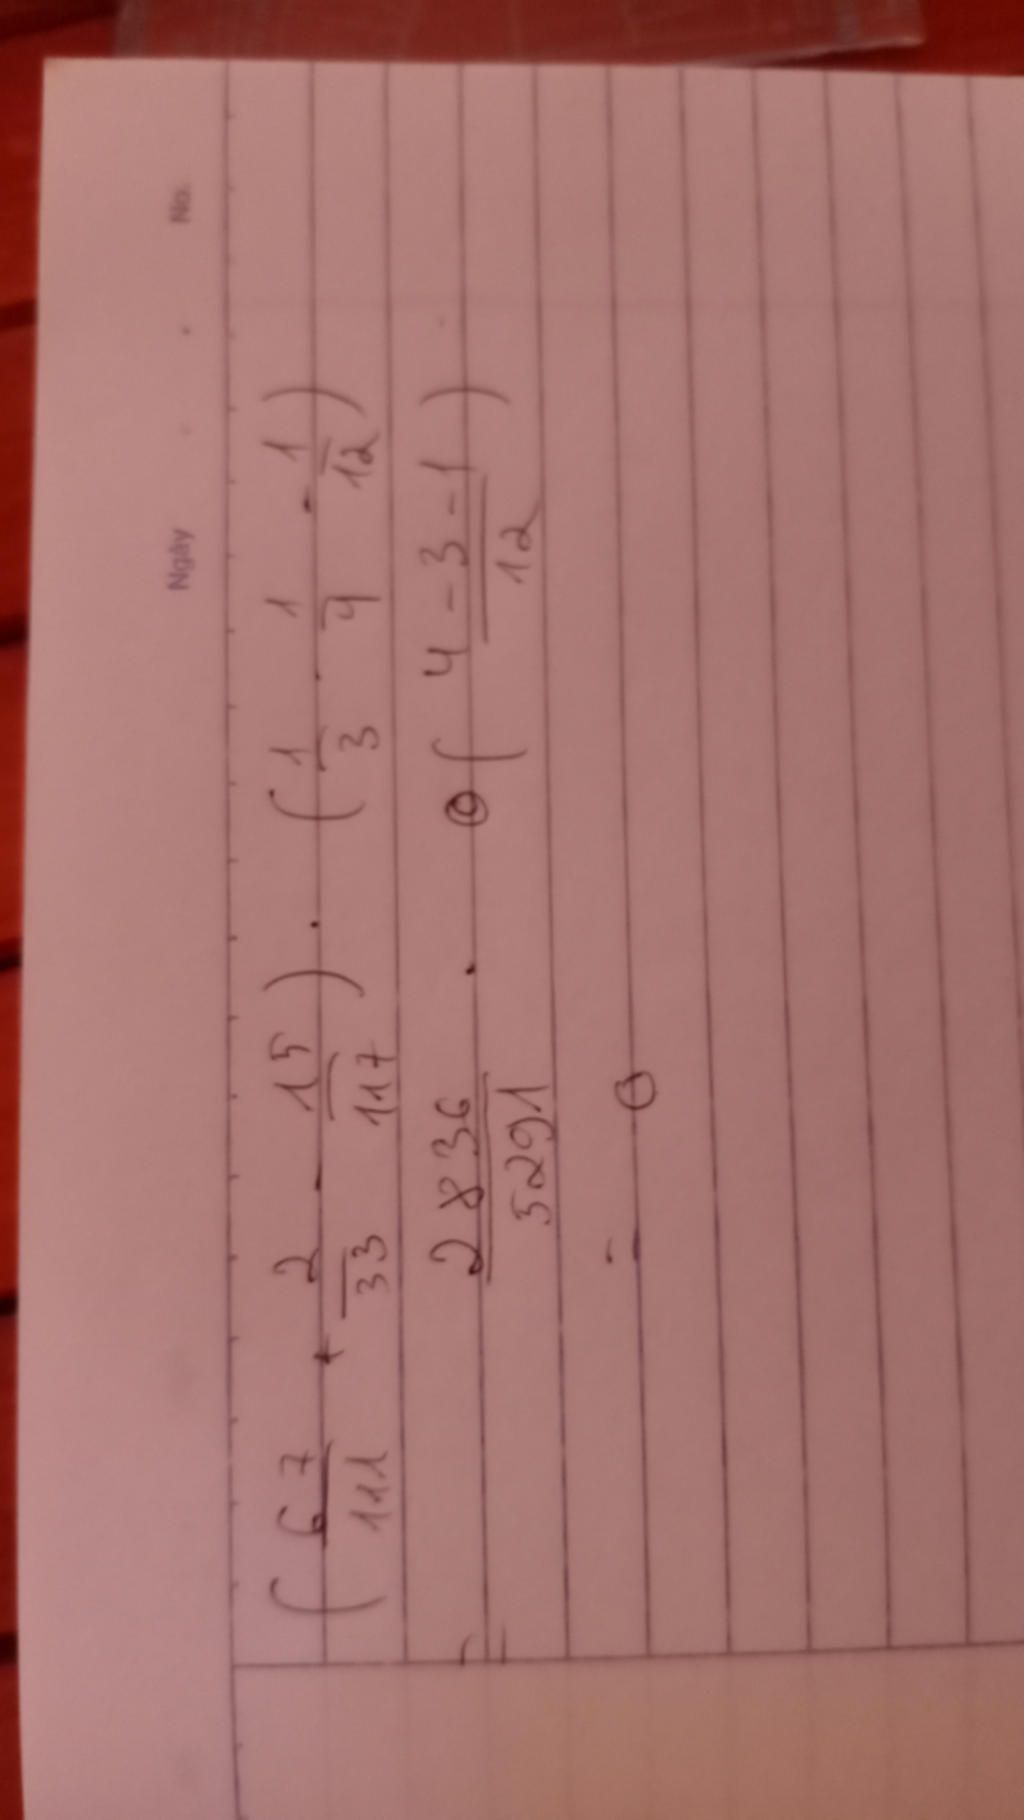 No.
Ngày
( 67/111 + 2/33 - 15/117 ) . ( 1/3 - 1/4 - 1/12 )
= 2836/5291 . ( 4 - 3 - 1 / 12 )
= 0